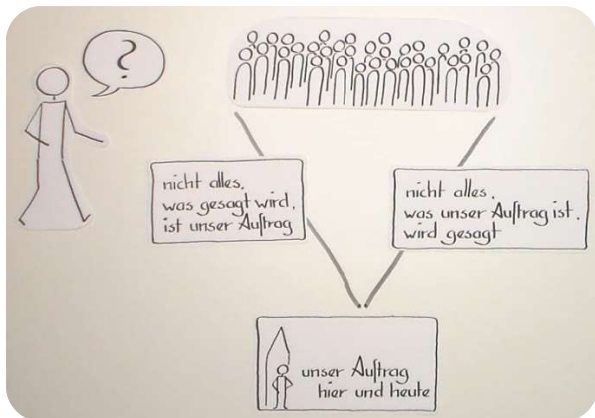 ?
nicht alles,
was gesagt wird,
ist unser Auftrag
nicht alles,
was unser Auftrag ist,
wird gesagt
unser Auftrag
hier und heute